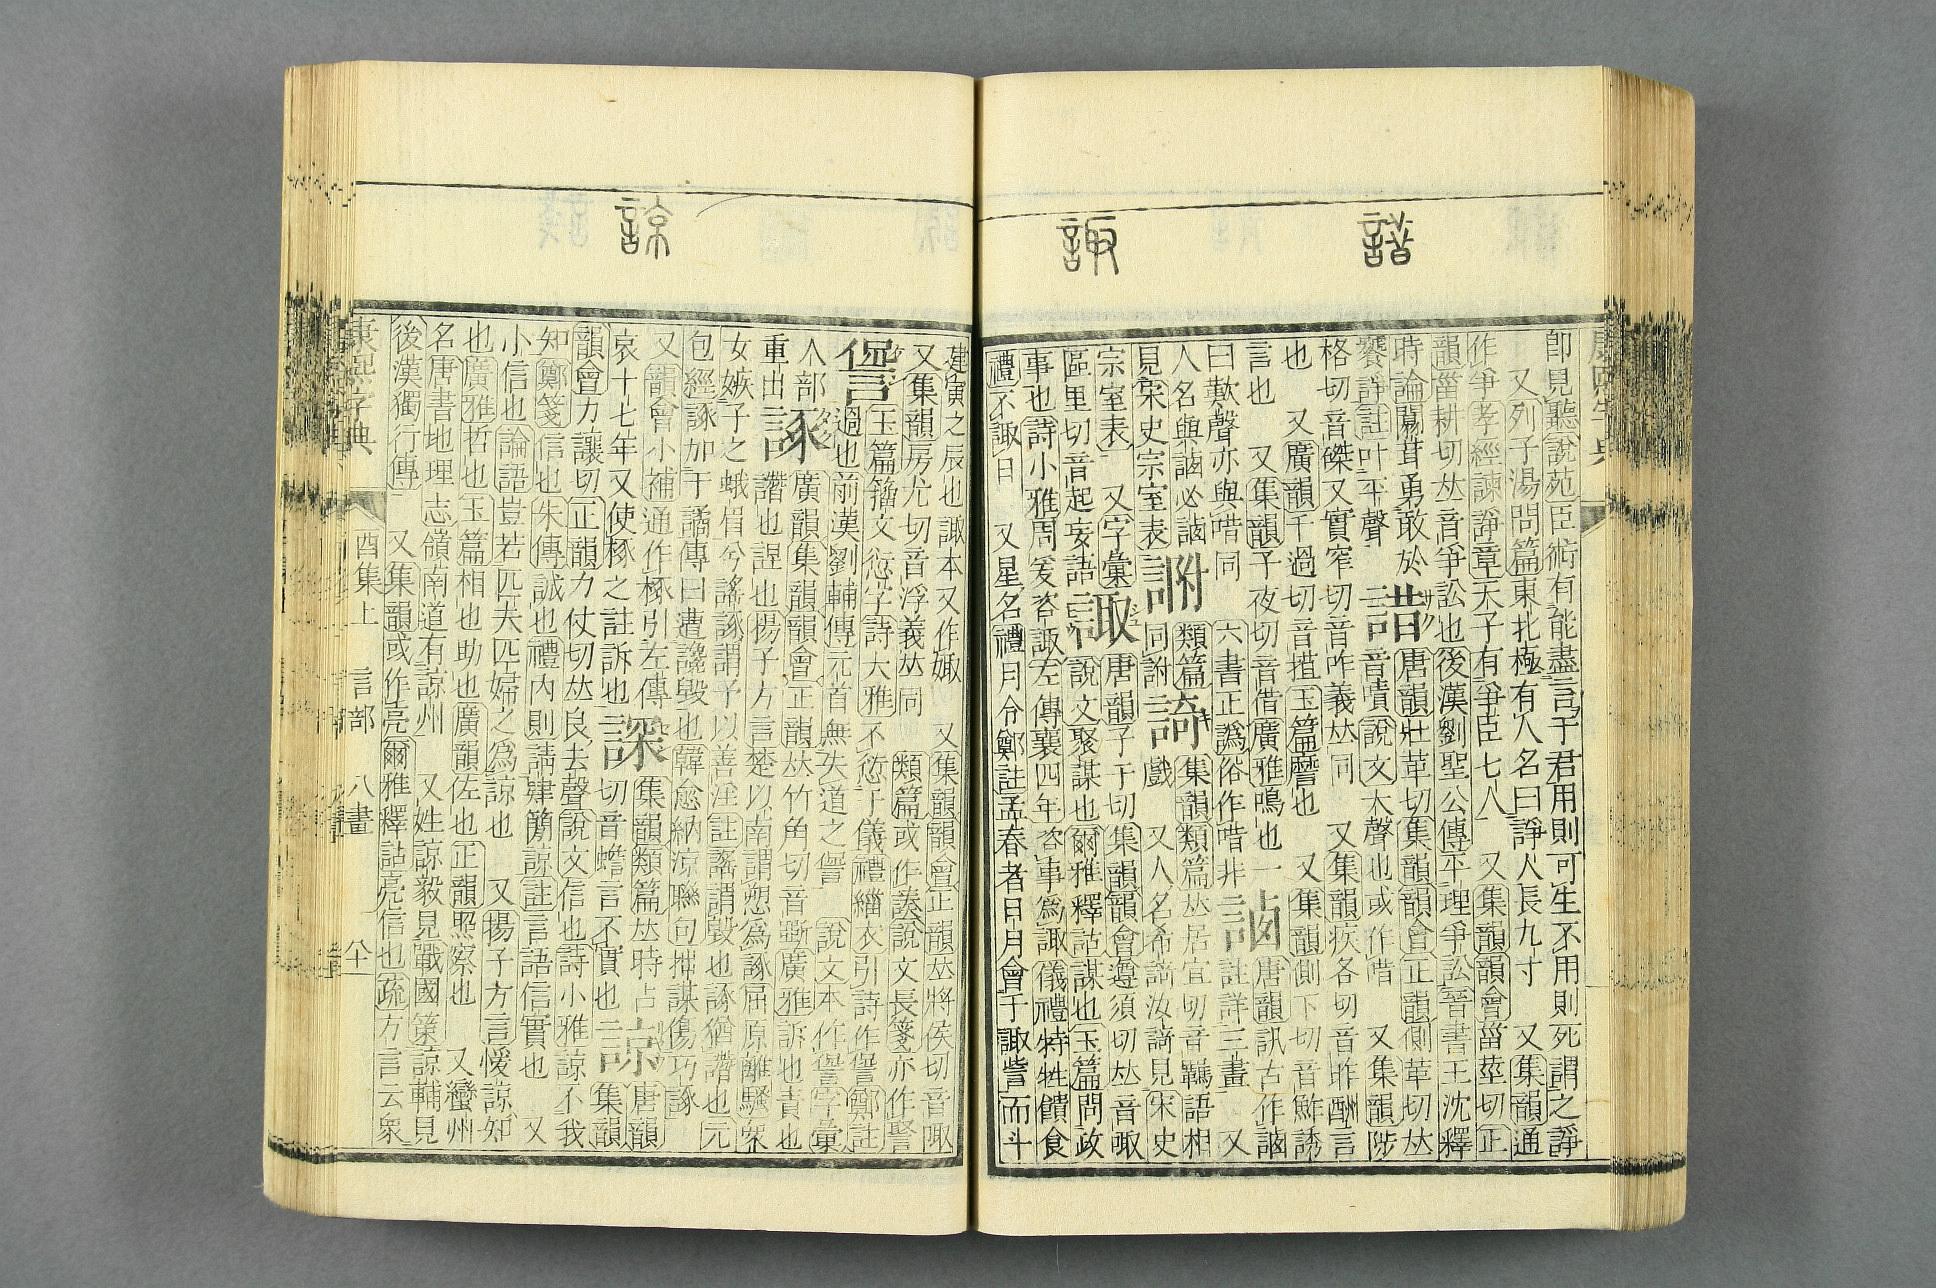 諎
諏
諒
即見聽說苑臣術有能盡言于君用則可生不用則死謂之諍
又列子湯問篇東北極有人名曰諍人長九寸 又集韻通
作爭孝經諫諍章天子有爭臣七人 又集韻韻會甾莖切正
韻甾耕切𠀤音爭訟也後漢劉聖公傳平理爭訟晉書王沈釋
時論闒茸勇敢於
饕諍註叶平聲
諎
唐韻壯革切集韻韻會正韻側革切𠀤
音嘖說文大聲也或作唶 又集韻陟
格切音磔又實窄切音咋義𠀤同 又集韻疾各切音昨酬言
也 又廣韻千過切音 玉篇磿也 又集韻側下切音鮓誘
言也 又集韻子夜切音借廣雅鳴也一
曰歎聲亦與唶同 六書正譌俗作唶非
唐韻訊古作
註詳三畫 又
人名與 必
見宋史宗室表
類篇
同詂
集韻類篇𠀤居宜切音羈語相
戲 又人名希 汝 見宋史
宗室表 又字彙
區里切音起妄語
諏
唐韻子于切集韻韻會遵須切𠀤音陬
說文聚謀也爾雅釋詁謀也玉篇問政
事也詩小雅周爰咨諏左傳襄四年咨事爲諏儀禮特牲饋食
禮不諏日 又星名禮月令鄭註孟春者日月會于諏訾而斗
建寅之辰也諏本又作娵 又集韻韻會正韻𠀤將侯切音陬
又集韻房尤切音浮義𠀤同 類篇或作 說文長箋亦作
諐
玉篇籀文愆字詩大雅不愆于儀禮緇衣引詩作諐鄭註
過也前漢劉輔傳元首無失道之諐 說文本作諐字彙
人部
重出
諑
廣韻集韻韻會正韻𠀤竹角切音斲廣雅訴也責也
譖也 也揚子方言楚以南謂愬爲諑屈原離騷衆
女嫉予之蛾眉兮謠諑謂予以善淫註謠謂毀也諑猶譖也元
包經諑加于譎傳曰遭讒毀也韓愈納涼聯句拙謀傷巧諑
又韻會小補通作椓引左傳
哀十七年又使椓之註訴也
集韻類篇𠀤時占
切音蟾言不實也
諒
唐韻
集韻
韻會力讓切正韻力仗切𠀤良去聲說文信也詩小雅諒不我
知鄭箋信也朱傳誠也禮內則請肄簡諒註言語信實也 又
小信也論語豈若匹夫匹婦之爲諒也 又揚子方言懓諒知
也廣雅哲也玉篇相也助也廣韻佐也正韻照察也 又蠻州
名唐書地理志嶺南道有諒州 又姓諒毅見戰國策諒輔見
後漢獨行傳 又集韻或作亮爾雅釋詁亮信也疏方言云衆
康熙字典 酉集上 言部 八畫